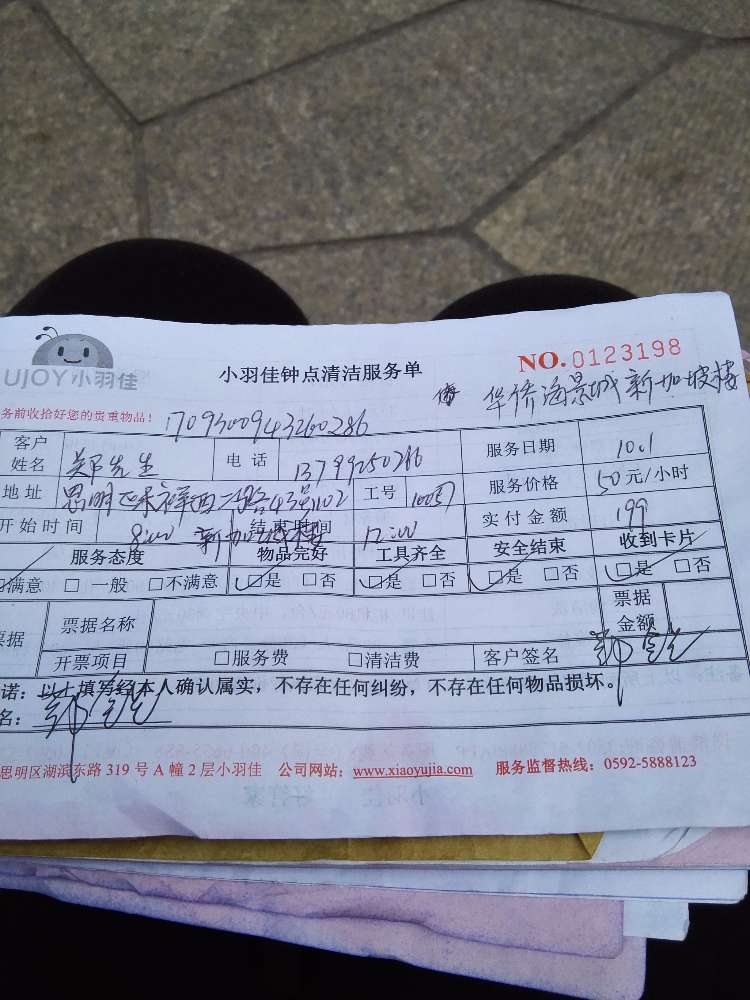 UJOY小羽佳
小羽佳钟点清洁服务单
NO.0123198
华侨海景城新加坡楼
务前收拾好您的贵重物品!
1709300943260286
客户姓名 郑先生 电话 13799250286 服务日期 10.1
地址 思明区禾祥西二路43号1102 工号 服务价格 50元/小时
开始时间 8:00 新加坡楼 结束时间 12:00 实付金额 199
服务态度 物品完好 工具齐全 安全结束 收到卡片
□满意 □一般 □不满意 □是 □否 □是 □否 □是 □否 □是 □否
票据 票据名称 票据金额
开票项目 □服务费 □清洁费 客户签名
诺:以上填写经本人确认属实,不存在任何纠纷,不存在任何物品损坏。
名:
思明区湖滨东路 319 号 A 幢 2 层小羽佳 公司网站:www.xiaoyujia.com 服务监督热线:0592-5888123